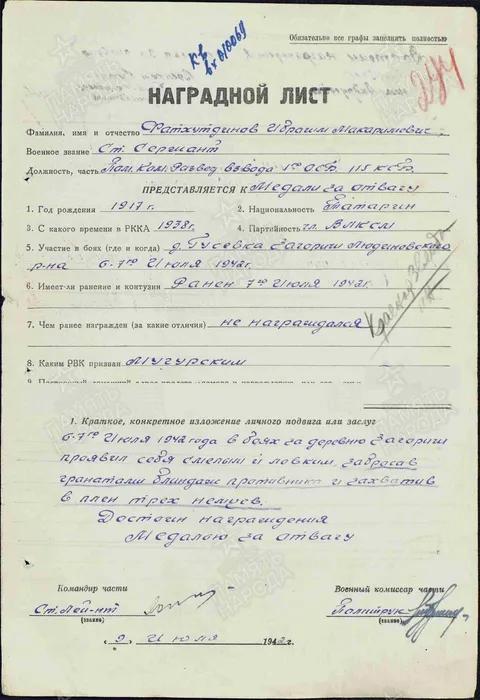 Обязательно все графы заполнять полностью
Кв
вх 010069
НАГРАДНОЙ ЛИСТ
Фамилия, имя и отчество Фатхутдинов Ибраим Макаримович
Военное звание Ст. Сержант
Должность, часть Пом. Ком. Развед взвода 1го ОСБ. 115 КСБ.
ПРЕДСТАВЛЯЕТСЯ К Медали за отвагу
1. Год рождения 1917 г. 2. Национальность Татарин
3. С какого времени в РККА 1938 г. 4. Партийность чл. ВЛКСМ
5. Участие в боях (где и когда) д. Гусевка Загоричи Людиновского
р-на 6-7го Июля 1942 г.
6. Имеет-ли ранение и контузии Ранен 7го Июля 1942 г.
Красная Звезда
7. Чем ранее награжден (за какие отличия) не награждался
8. Каким РВК призван Мугурским
1. Краткое, конкретное изложение личного подвига или заслуг
6-7го Июля 1942 года в боях за деревню Загоричи
проявил себя смелым и ловким, забросав
гранатами блиндаж противника и захватив
в плен трех немцев.
Достоин награждения
Медалью за отвагу
Командир части Военный комиссар части
Ст. Лей-нт Политрук
(звание) (звание)
„ 9 " Июля 1942 г.
ПАМЯТЬ НАРОДА